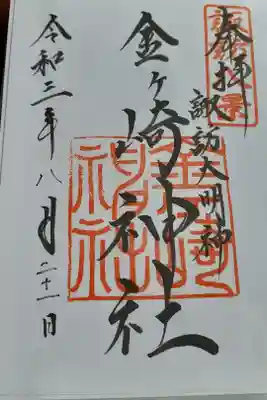 奉拝
諏訪大明神
金ヶ崎神社
令和三年八月二十一日